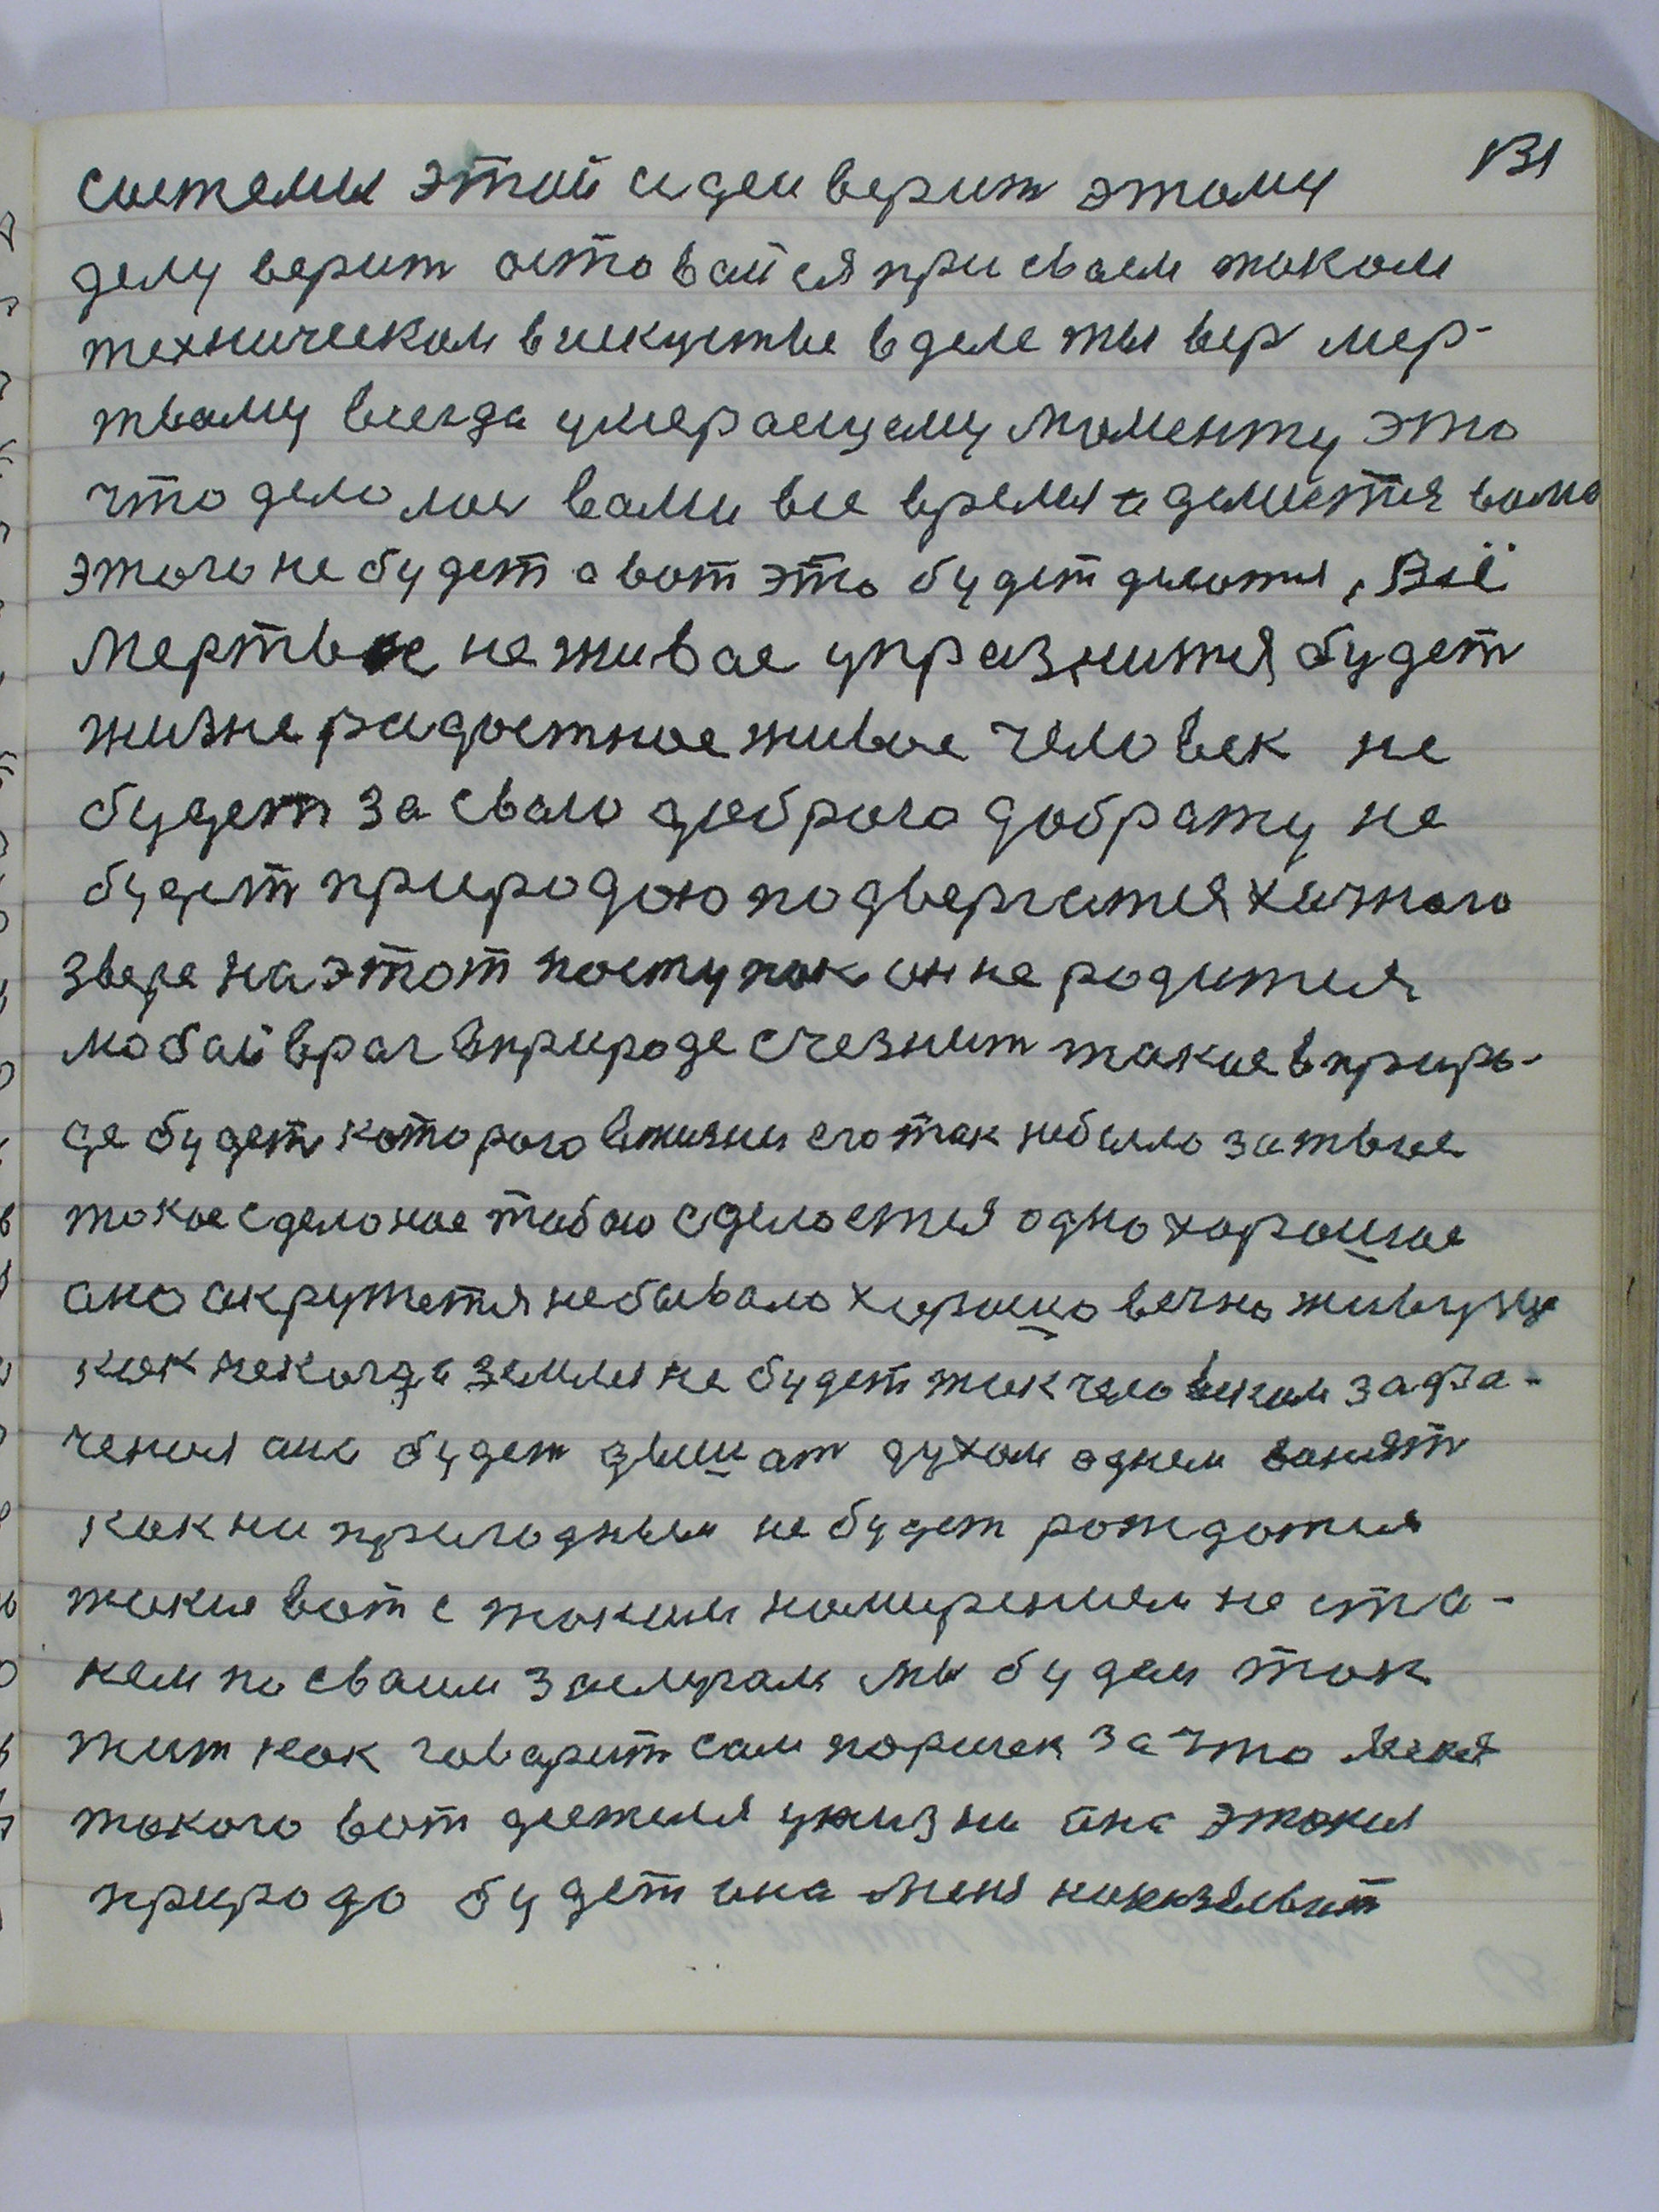 131
системы этой идеи верит этому
делу верит оставайся при своем таком
техническом в искустве в деле ты вер мер-
твому всегда умераещему моменту это
что дело моя вами все время и делается вами
этого не будет а вот это будет делатся, Всё
мертвое не живае упразнится будет
жизнерадостное живое человек не
будет за сваго доброго доброту не
будет природою подвергатся хитрого
звере на этот поступок он не родится
любай враг в природе счезнит такие в приро-
де будет которого в жизни его так небыло за твое
токое сделоное табою сделается одно хорошое
ано окружется небывало хорошо вечно живущие
как некогда земля не будет так человеком захва-
ченая ана будет дышат духом аднем
как ни природным не будет рождатся
такия вот с таким намирением не ста-
нем по сваим замерам мы будем так
жит как говарит сам паршек за что
такого вот деятеля у жизни ана этокия
природо будет она меня наказыват